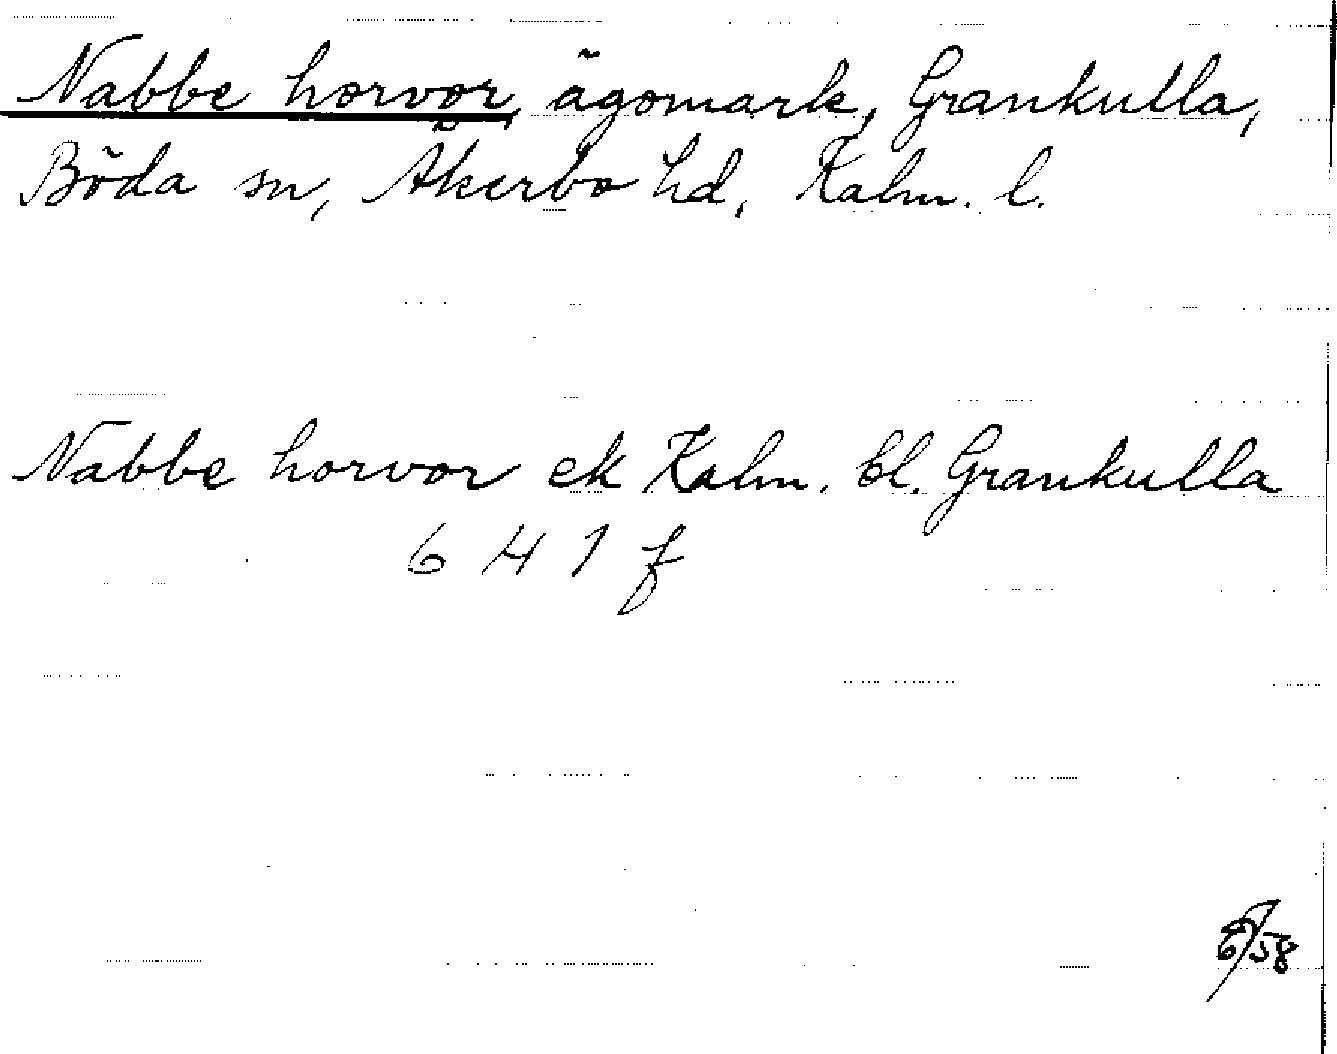 Nabbe horvor, ägomark, Grankulla,
Böda sn, Åkerbo hd, Kalm. l.
Nabbe horvor ek Kalm. bl. Grankulla
6 H 1 f